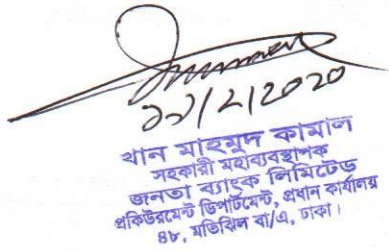 খান মাহমুদ কামাল
সহকারী মহাব্যবস্থাপক
জনতা ব্যাংক লিমিটেড
প্রকিউরমেন্ট ডিপার্টমেন্ট, প্রধান কার্যালয়
৪৮, মতিঝিল বা/এ, ঢাকা।